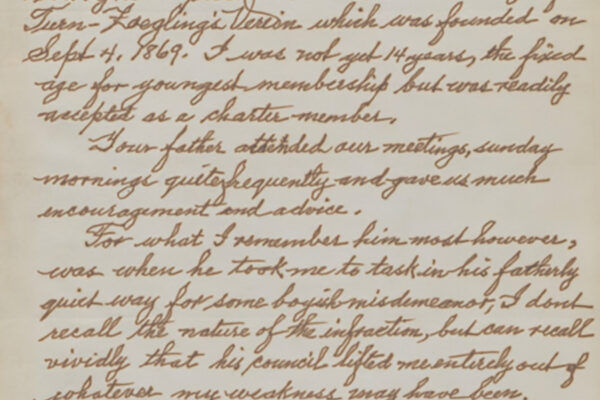 Turn-Zoegling's Verein which was founded on
Sept 4, 1869. I was not yet 14 years, the fixed
age for youngest membership but was readily
accepted as a charter member.
Your father attended our meetings, sunday
mornings quite frequently and gave us much
encouragement and advice.
For what I remember him most however,
was when he took me to task in his fatherly
quiet way for some boyish misdemeanor, I dont
recall the nature of the infraction, but can recall
vividly that his council lifted me entirely out of
whatever my weakness may have been.